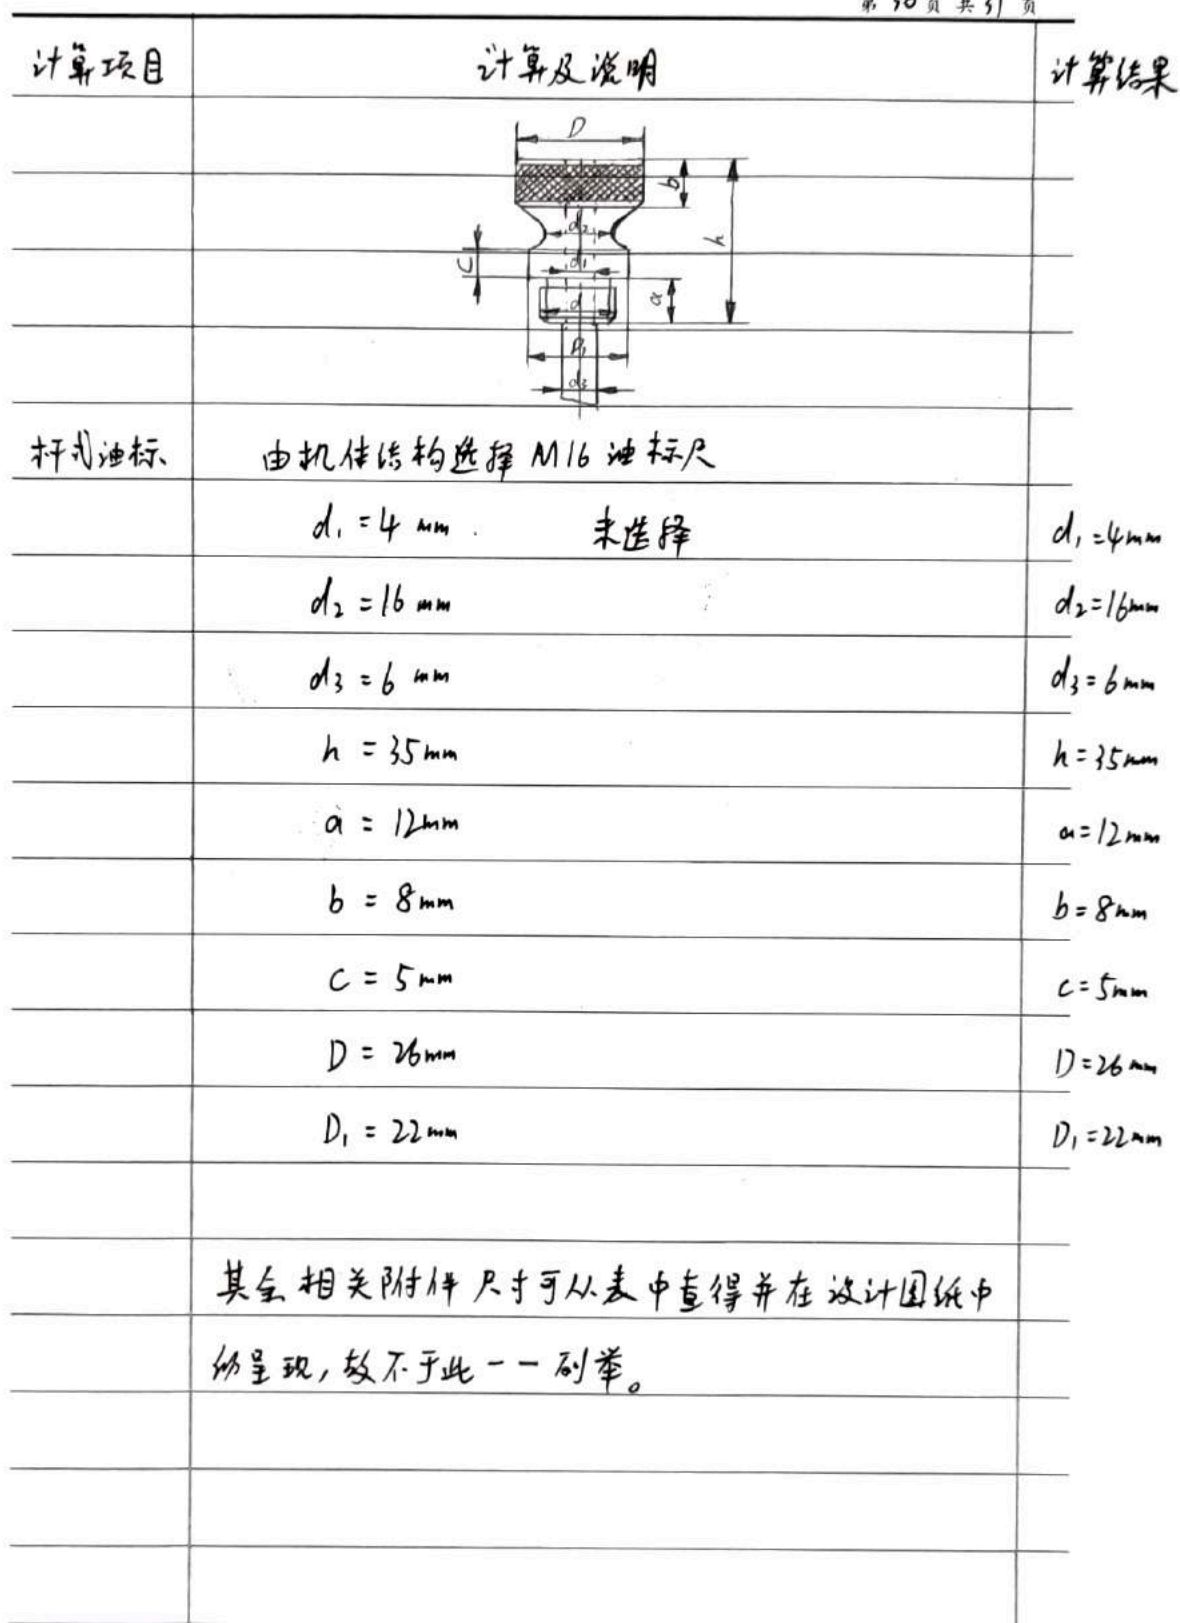 第30页共31页
计算项目 计算及说明 计算结果
D
b
h
d2
C
d1
a
d
D1
d3
杆式油标 由机体结构选择 M16 油标尺
d1 =4 mm 未选择 d1 =4mm
d2 =16 mm d2=16mm
d3 =6 mm d3=6mm
h = 35mm h=35mm
a = 12mm a=12mm
b = 8mm b=8mm
C = 5mm c=5mm
D = 26mm D=26mm
D1 = 22mm D1=22mm
其余相关附件尺寸可从表中查得并在设计图纸中
呈现,故不于此一一列举。